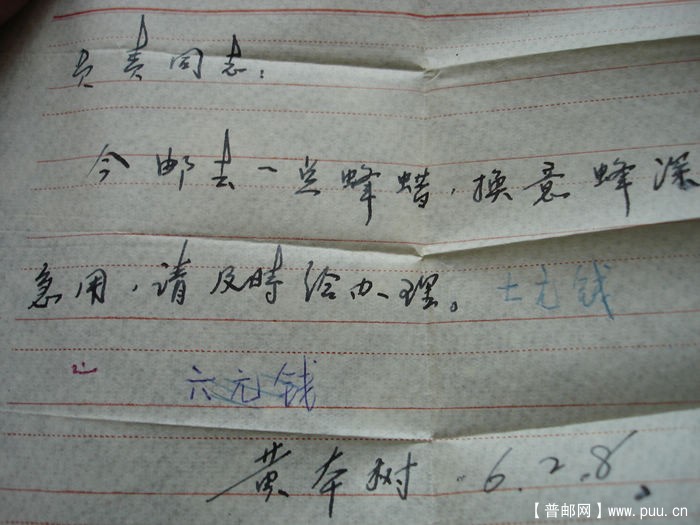 负责同志:
今邮去一点蜂蜡,换意蜂深
急用,请及時给办理。 七元钱
六元钱
黄本树 6.2.8.
【普邮网】www.puu.cn